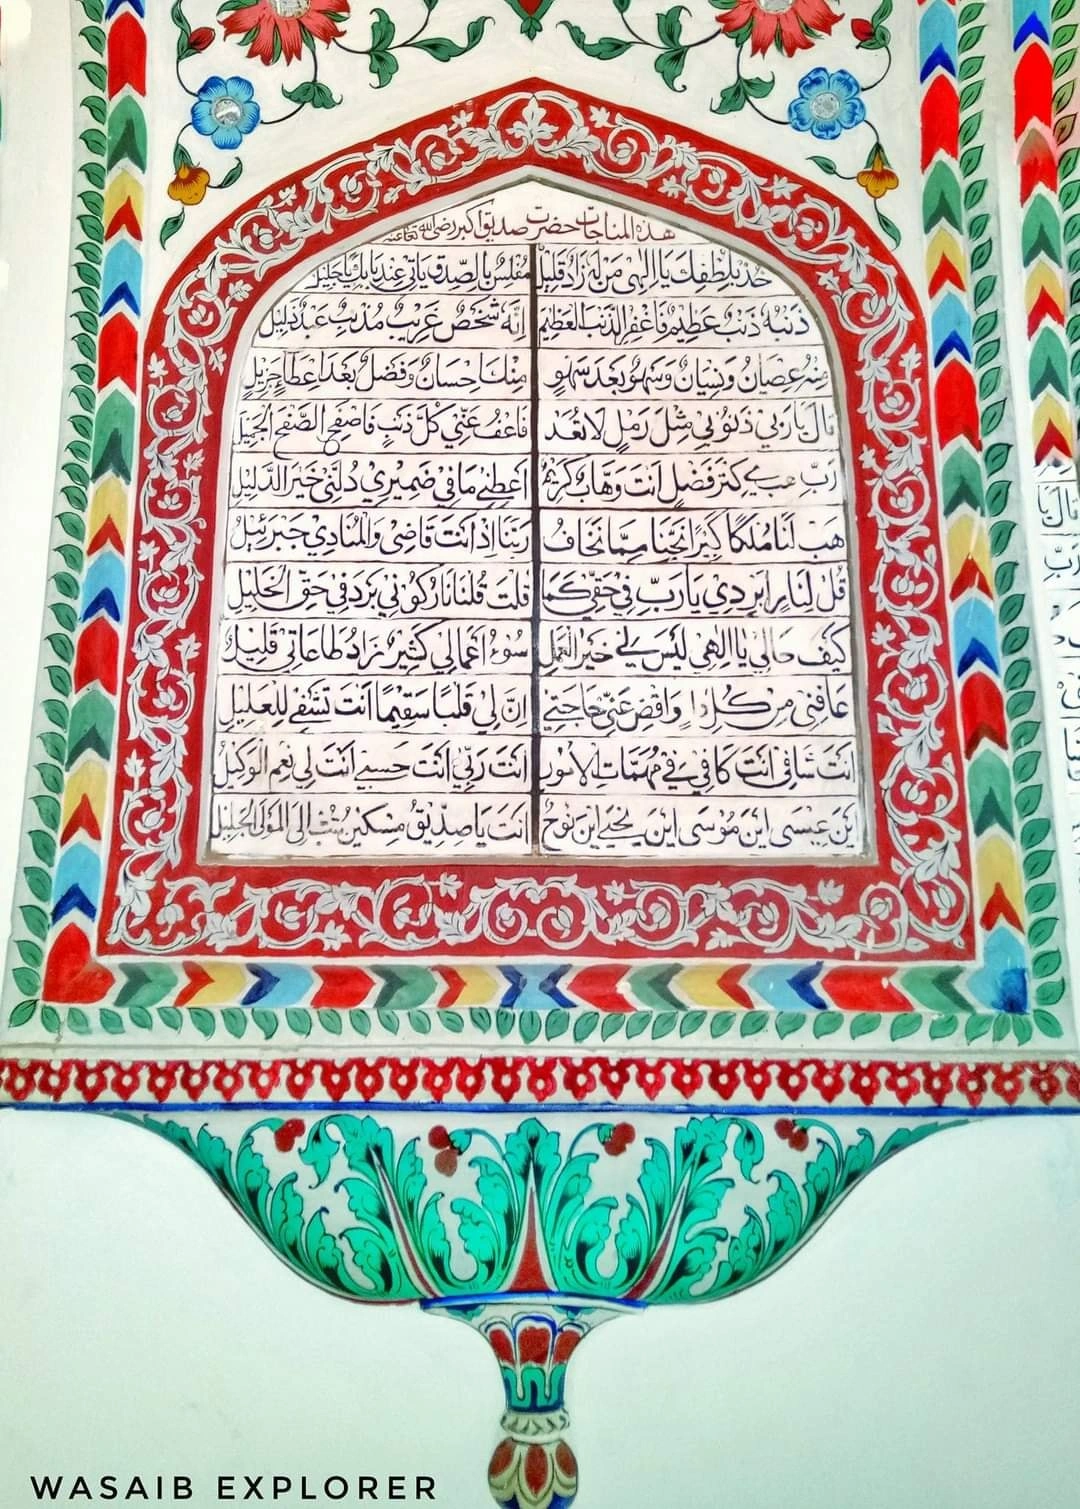 هذه المناجات حضرت صديق اكبر رضی الله تعالی عنه
خذ بلطفك يا الهی من له زاد قليل مفلس بالصدق ياتی عند بابك يا جليل
ذنبه ذنب عظيم فاغفر الذنب العظيم انه شخص غريب مذنب عبد ذليل
منه عصيان ونسيان وسهو بعد سهو منك احسان وفضل بعد اعطاء جزيل
قال يا ربي ذنوبي مثل رمل لا تعد فاعف عني كل ذنب فاصفح الصفح الجميل
رب هب لي كنز فضل انت وهاب كريم اعطني ما في ضميري دلني خير الدليل
هب لنا ملكا كبيرا نجنا مما نخاف ربنا اذ انت قاضی والمنادي جبرئيل
قل لنار ابردي يا رب في حقي كما قلت قلنا نار كوني برد في حق الخليل
كيف حالي يا الٰهي ليس لي خير العمل سوء اعمالي كثير زاد طاعاتي قليل
عافنی من كل داء واقض عني حاجتي ان لي قلبا سقيما انت تشفي للعليل
انت شافی انت كافي في مهمات الامور انت ربي انت حسبي انت لي نعم الوكيل
اين عيسى اين موسى اين يحيی اين نوح انت يا صديق مسكين تب الى المولى الجليل
قال يا
رب
WASAIB EXPLORER